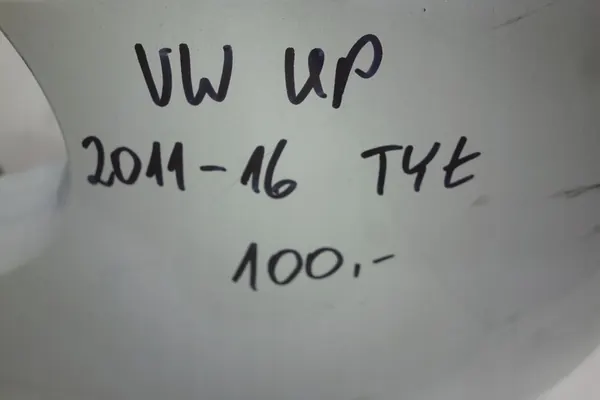 VW UP
2011-16 TYŁ
100,-